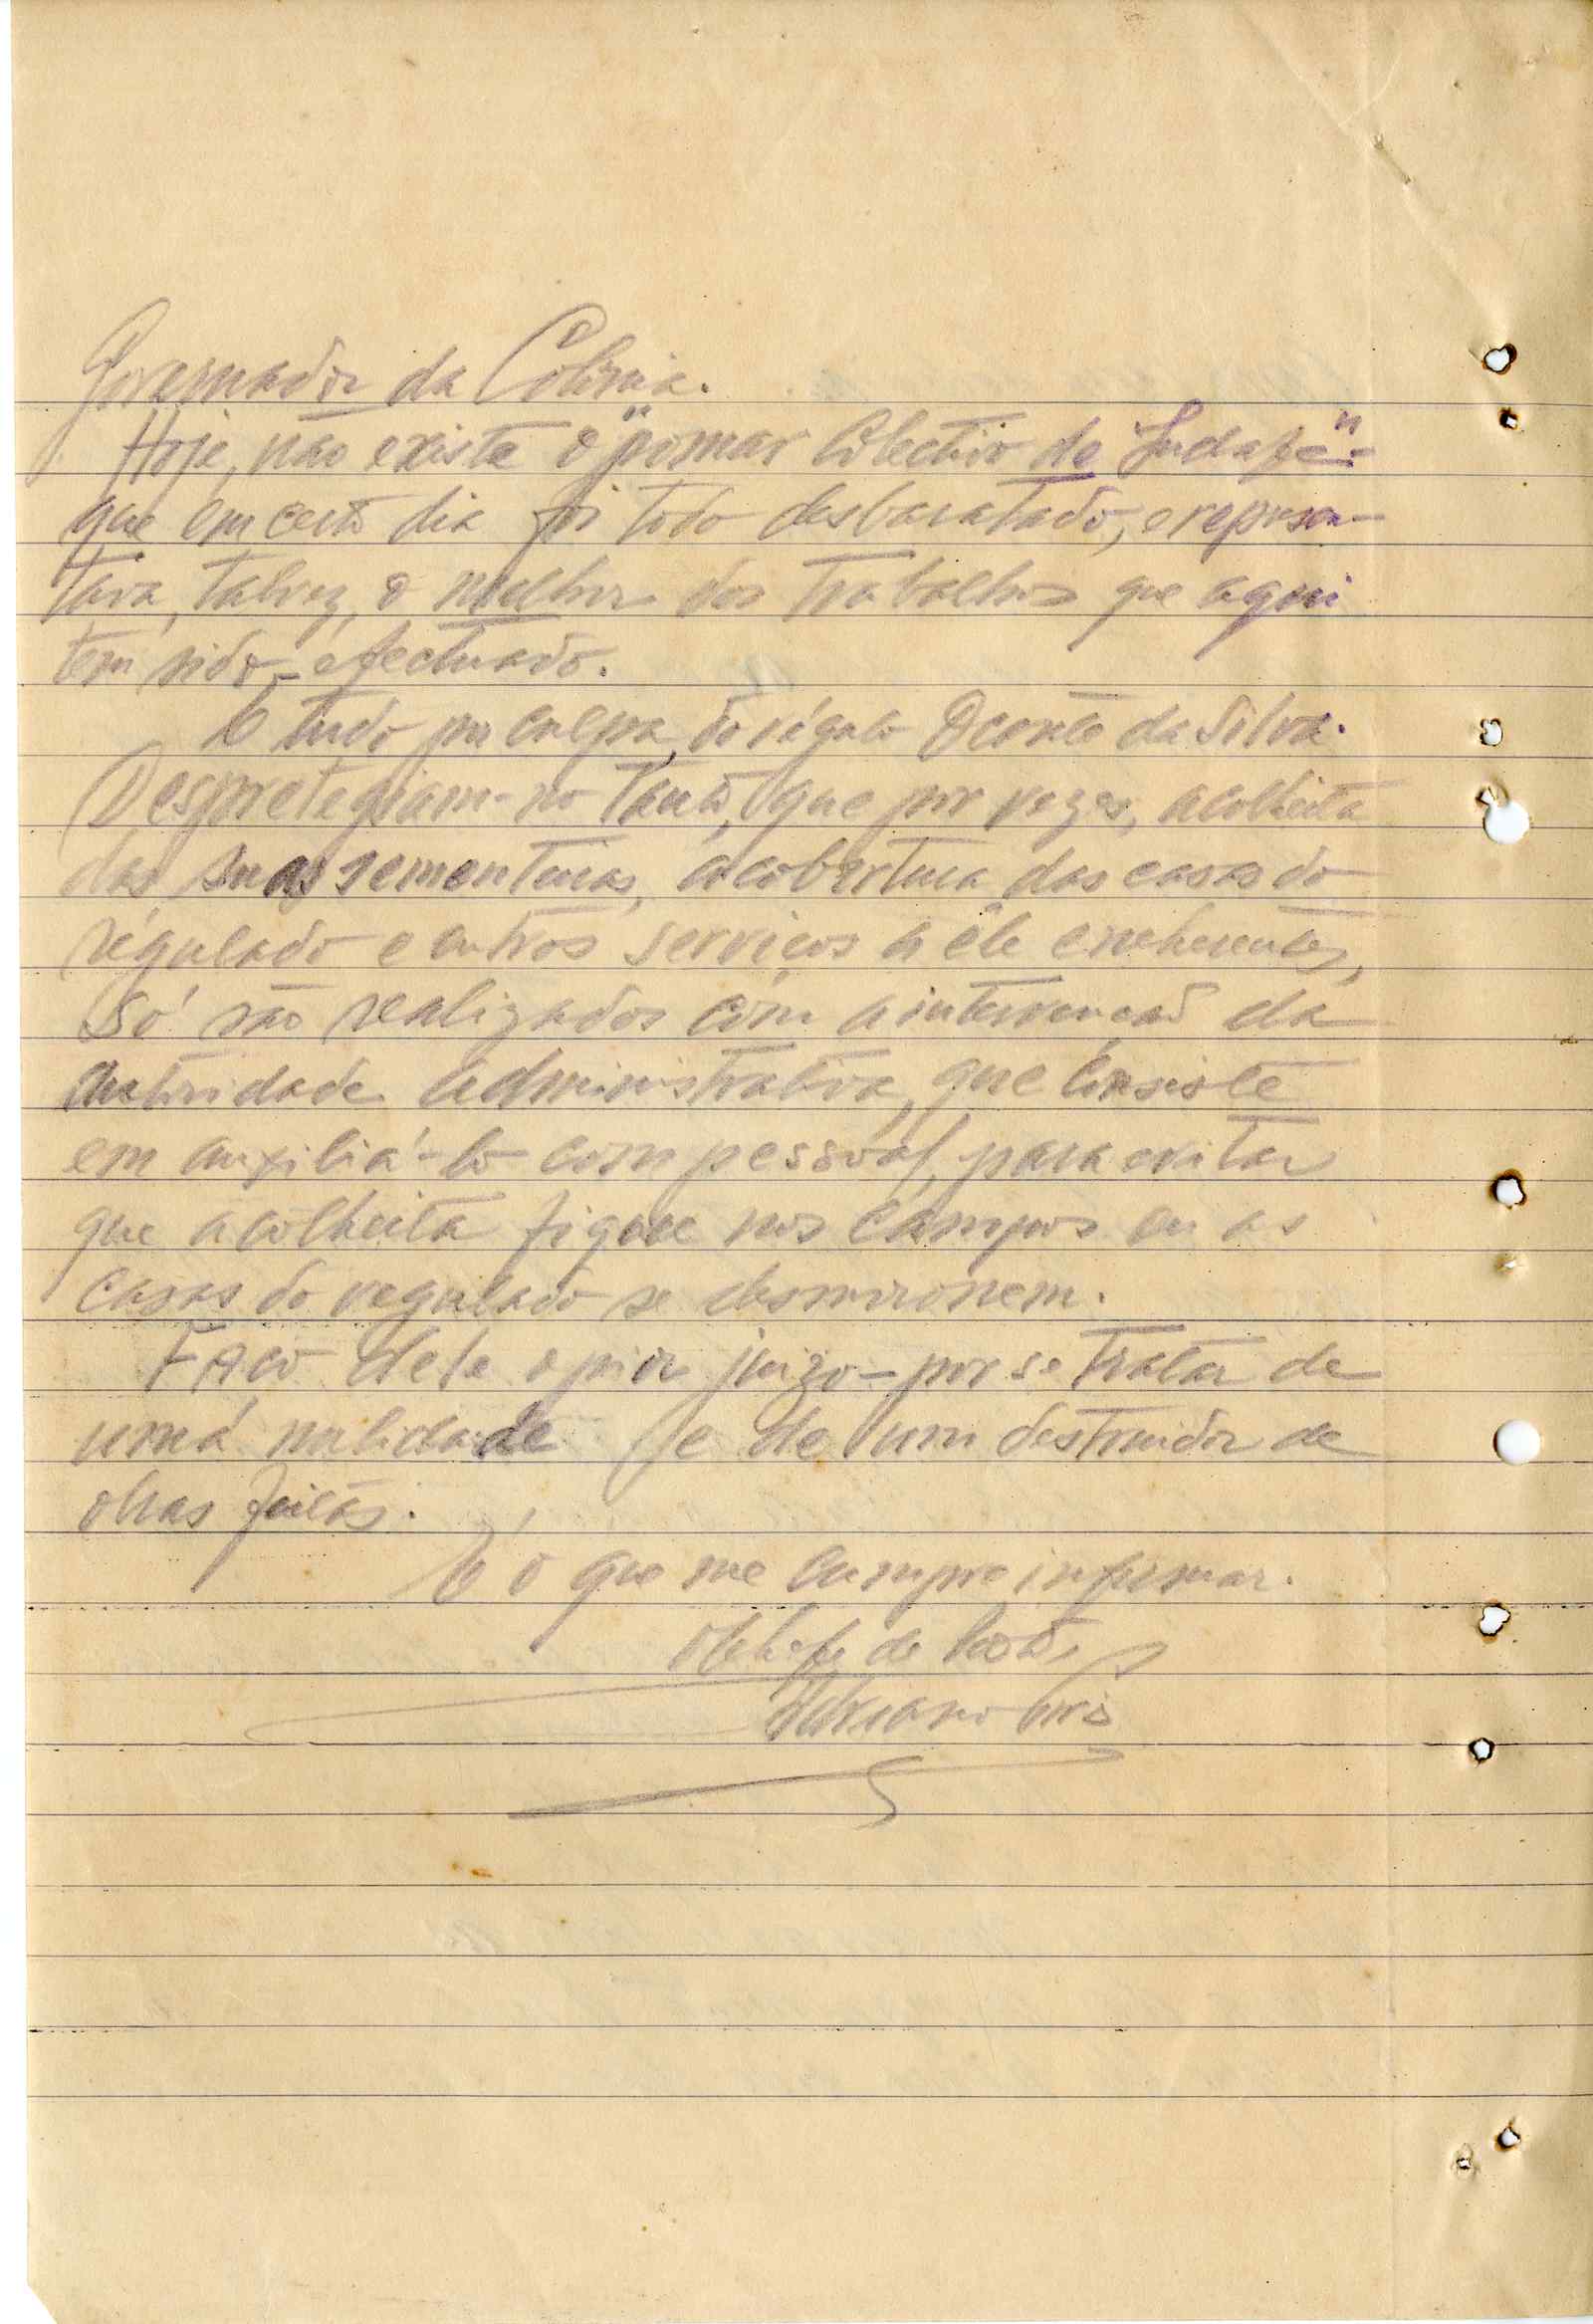 Governador da Colónia.
Hoje, não existe o "pomar colectivo de
que em certo dia foi todo desbaratado, e represen-
tava, talvez, o melhor dos trabalhos que aqui
tem sido efectuado.
E tudo por culpa do régulo da Silva.
tanto, que por vezes, a colheita
das suas sementeiras, a cobertura das casas do
regulado e outros serviços a êle eneherentes,
só são realizados com a intervenção da
autoridade administrativa, que consiste
em auxiliá-lo com pessoal, para evitar
que a colheita fique nos campos ou as
casas do regulado se desmoronem.
Faço dele o pior juizo - por se tratar de
uma nulidade e de um destruidor de
obras feitas.
É o que me cumpre informar.
O Chefe de Posto,
Adriano